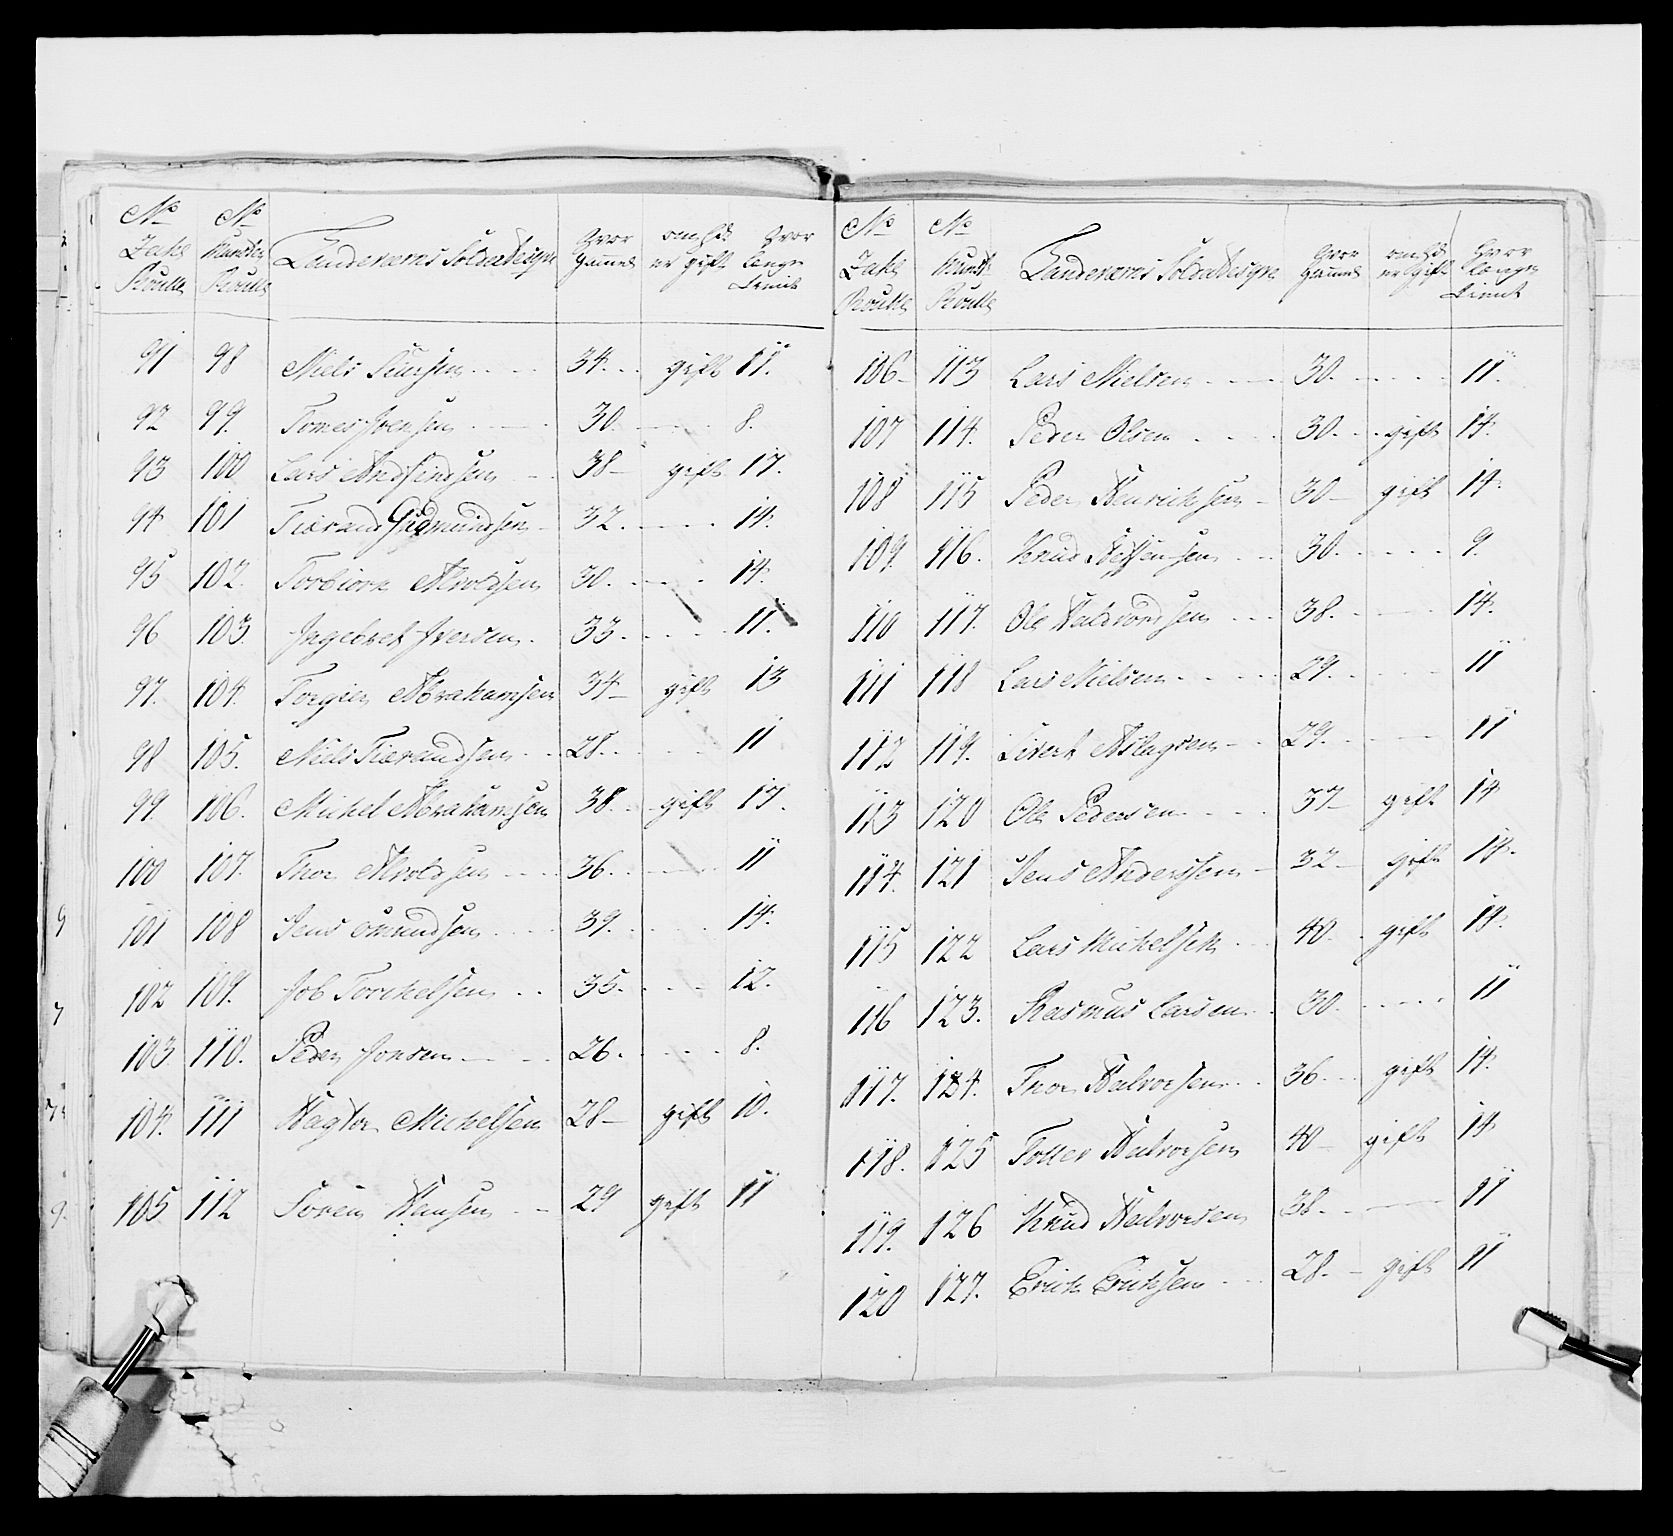 No No
Rulle Rulle
Landeværns Soldatesqve Hvor gammel om hd er gift Hvor længe tient
91 98 Niels 34. gift 11.
92 99. Tomes Joensen 30. 8.
93 100 Lars 38 gift 17.
94 101 Tierand Gudmundsen 32. 14.
95 102. Torbiørn Alvoldsen 30. 14.
96 103. Ingebret Iversen 33. 11.
97. 104. Torgier Abrahamsen 34 gift 13
98 105. Niels Tierandsen 28. 11
99. 106. Michel Abrahamsen 38. gift 17.
100 107. Thor Alvoldsen 36. 11
101 108 Jens Omundsen 39. 14.
102 109. Job Torchelsen 35. 12.
103 110. Peder Jonsen 26. 8.
104. 111 Michelsen 28 gift 10.
105 112 Søren Hansen 29 gift 11
No No
Rulle Rulle
Landeværns Soldatesqve Hvor gammel om hd er gift Hvor længe tient
106 113 Lars Nielsen 30. 11.
107 114. Peder Olsen 30. gift 14.
108 115 Peder Henrichsen 30 gift 14.
109. 116. Knud 30. 9.
110 117. Ole Halvorsen 38. 14.
111 118 Lars Nielsen 29. 11
112 119. Sivert Aslagsen 29. 11
113 120 Ole Pedersen 37 gift 14
114. 121 Jens Anderssen 32 gift 14.
115 122 Lars Michelsen 40. gift 14.
116 123. Rasmus Larsen 30. 11
117. 124. Thor Halvorsen 36 gift 14.
118. 125 Halvorsen 40 gift 14
119. 126 Knud Halvorsen 38. 11
120 127. Erich Erichsen 28. gift 11